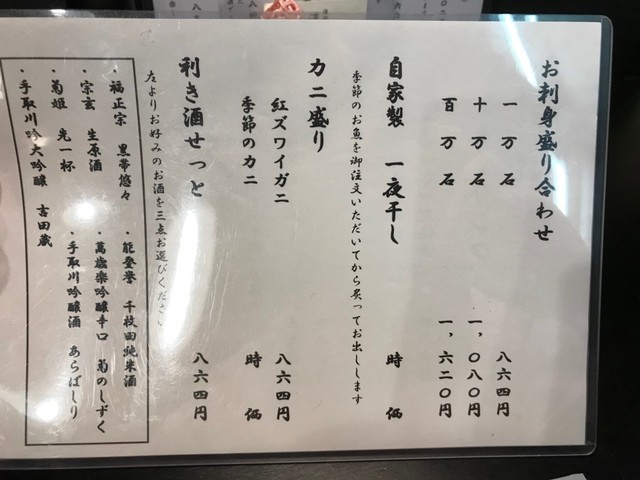 お刺身盛り合わせ
一万石 八六四円
十万石 一、〇八〇円
百万石 一、六二〇円
自家製 一夜干し 時価
季節のお魚を御注文いただいてから炙ってお出しします
カニ盛り
紅ズワイガニ 八六四円
季節のカニ 時価
利き酒せっと 八六四円
左よりお好みのお酒を三点お選びください
・福正宗 黒帯悠々 ・能登誉 千枚田純米酒
・宗玄 生原酒 ・萬歳楽吟醸辛口 菊のしずく
・菊姫 先一杯 ・手取川吟醸酒 あらばしり
・手取川吟大吟醸 吉田蔵